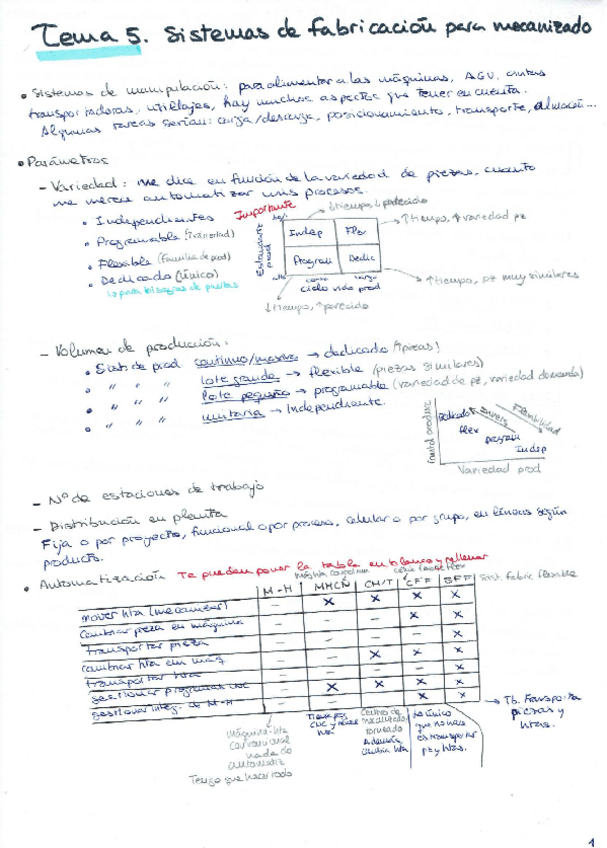 Tema 5. Sistemas de fabricación para mecanizado
• Sistemas de manipulación: para alimentar a las máquinas, AGV, cintas
transportadoras, utillajes, hay muchos aspectos que tener en cuenta.
Algunas tareas serían: carga/descarga, posicionamiento, transporte, almacén...
• Parámetros
- Variedad: me dice en función de la variedad de piezas, cuanto
me merece automatizar mis procesos.
• Independientes
• Programable (↑variedad)
• Flexible (Familia de prod)
• Dedicado (único)
Importante
↓tiempo, ↓parecido
↑tiempo, ↑variedad pz
Indep Flex
Program Dedic
corto largo
ciclo vida prod
↑tiempo, pz muy similares
↓tiempo, ↑parecido
- Volumen de producción:
• Sist de prod continuo/masivo → dedicado (1 pieza!)
• " " " lote grande → flexible (piezas similares)
• " " " lote pequeño → programable (variedad de pz, variedad demanda)
• " " " unitaria → Independiente.
Dedicado
flex
program
Indep
Flexibilidad
Variedad prod
- Nº de estaciones de trabajo
- Distribución en planta
Fija o por proyecto, funcional o por proceso, celular o por grupo, en línea o según
producto.
• Automatización Te pueden poner la tabla en blanco y rellenar
M-H MHCN CM/T CFF SFF Sist. fabric flexible
mover hta (mecanizar) - x x x x
cambiar pieza en máquina - - - x x
transportar pieza - - - - x
cambiar hta en maq - - x x x
transportar hta - - - - x
gestionar programas CNC - x x x x
gestionar integ. de M-H - - - x x
→ Tb. transporta
piezas y
htas.
Máquina-hta
convencional
nada de
automatiz
Tengo que hacer todo
Centro de
mecanizado,
torneado
Además,
cambia hta
Lo único
que no hace
es transportar
pz y htas.
1